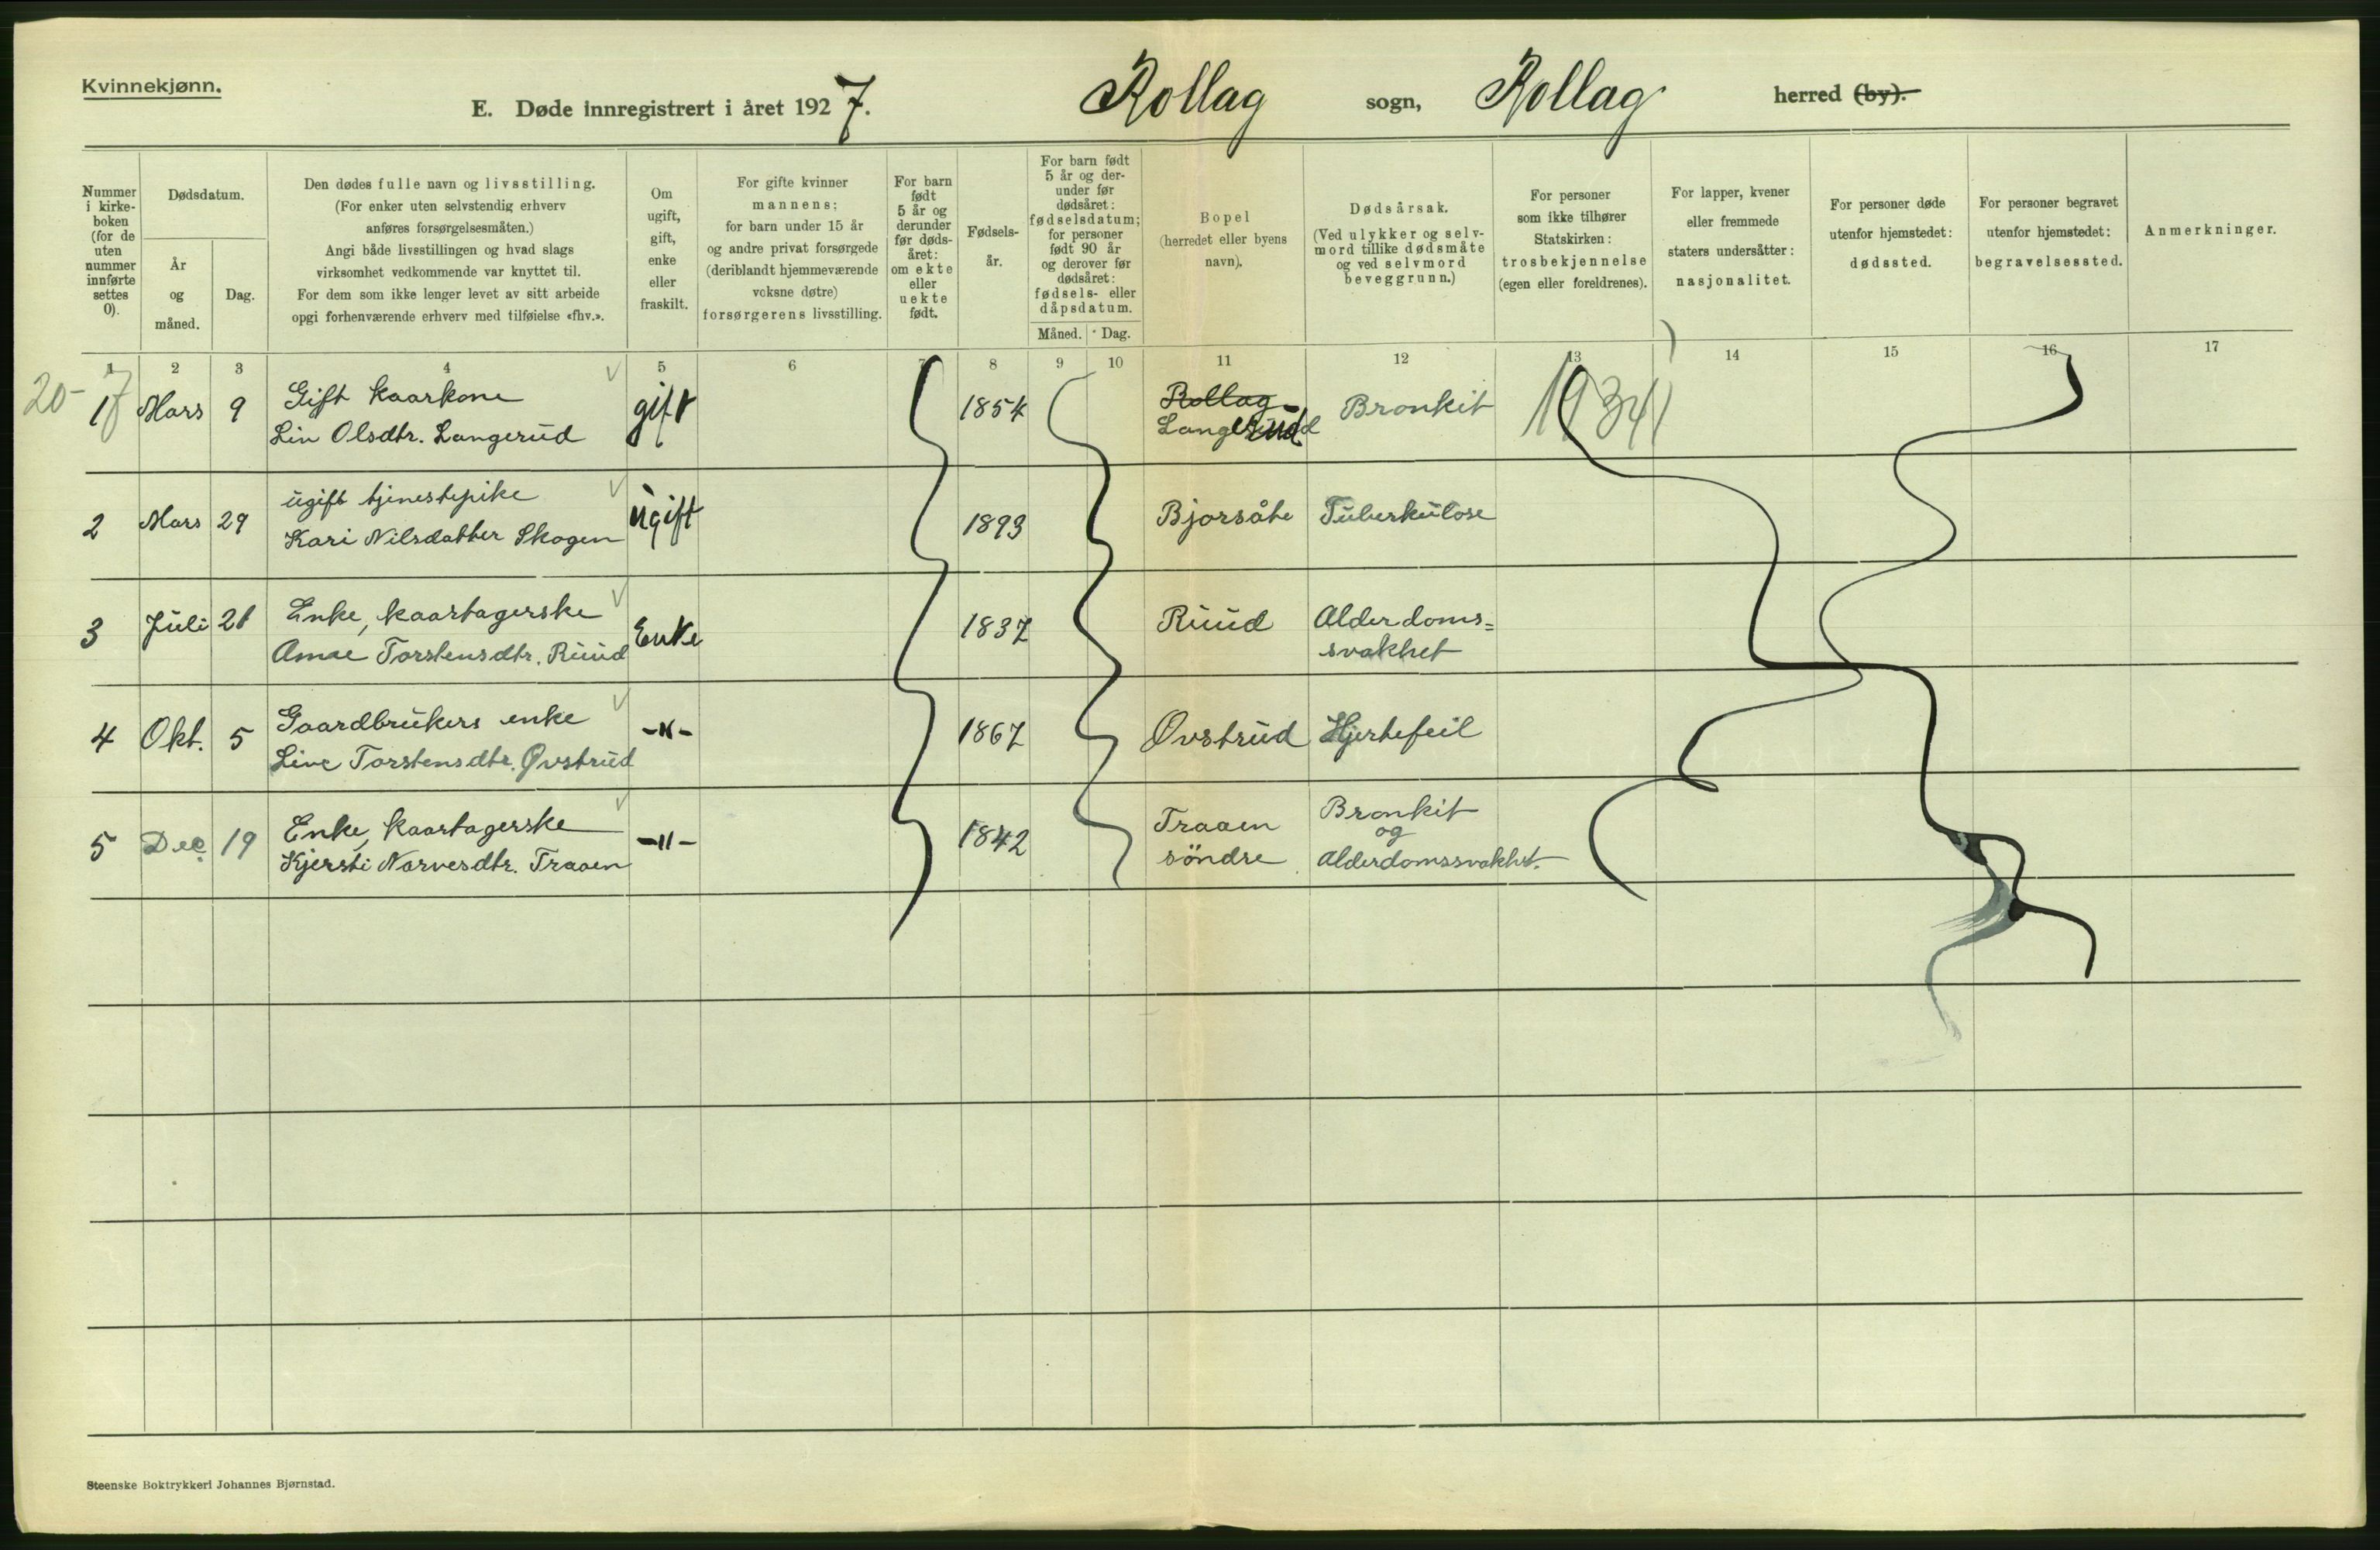 Kvinnekjønn.
E. Døde innregistrert i året 1927.
Rollag sogn, Rollag herred (by).
Nummer
i kirke-
boken
(for de
uten
nummer
innførte
settes
0).
Dødsdatum.
År
og
måned.
Dag.
Den dødes fulle navn og livsstilling.
(For enker uten selvstendig erhverv
anføres forsørgelsesmåten.)
Angi både livsstillingen og hvad slags
virksomhet vedkommende var knyttet til.
For dem som ikke lenger levet av sitt arbeide
opgi forhenværende erhverv med tilføielse «fhv.».
Om
ugift,
gift,
enke
eller
fraskilt.
For gifte kvinner
mannens;
for barn under 15 år
og andre privat forsørgede
(deriblandt hjemmeværende
voksne døtre)
forsørgerens livsstilling.
For barn
født
5 år og
derunder
før døds-
året:
om ekte
eller
uekte
født.
Fødsels-
år.
For barn født
5 år og der-
under før
dødsåret:
fødselsdatum;
for personer
født 90 år
og derover før
dødsåret:
fødsels- eller
dåpsdatum.
Måned. Dag.
Bopel
(herredet eller byens
navn).
Dødsårsak.
(Ved ulykker og selv-
mord tillike dødsmåte
og ved selvmord
beveggrunn.)
For personer
som ikke tilhører
Statskirken:
trosbekjennelse
(egen eller foreldrenes).
For lapper, kvener
eller fremmede
staters undersåtter:
nasjonalitet.
For personer døde
utenfor hjemstedet:
dødssted.
For personer begravet
utenfor hjemstedet:
begravelsessted.
Anmerkninger.
1 2 3 4 5 6 7 8 9 10 11 12 13 14 15 16 17
20-
1 Mars 9 Gift kaarkone gift 1854 Rollag Bronkit 1934
Lin Olsdtr. Langerud Langerud
2 Mars 29 ugift tjenestepike ugift 1893 Bjorsåte Tuberkulose
Kari Nilsdatter Skogen
3 Juli 21 Enke, kaartagerske Enke 1837 Ruud Alderdoms=
Torstensdtr. Ruud svakhet
4 Okt. 5 Gaardbrukers enke -"- 1867 Øvstrud Hjertefeil
Live Torstensdtr. Øvstrud
5 Dec. 19 Enke, kaartagerske -"- 1842 Traaen Bronkit
og
Kjersti Narvesdtr. Traaen söndre Alderdomssvakhet.
Steenske Boktrykkeri Johannes Bjørnstad.